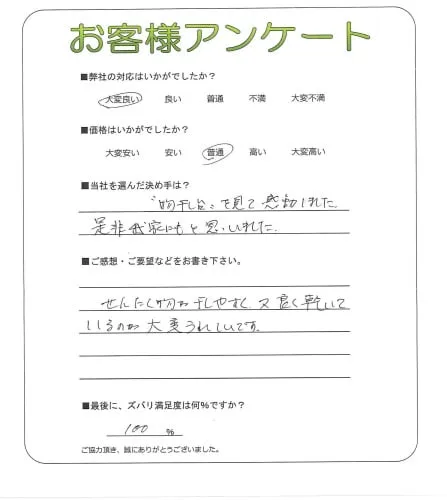 お客様アンケート
■弊社の対応はいかがでしたか？
大変良い 良い 普通 不満 大変不満
■価格はいかがでしたか？
大変安い 安い 普通 高い 大変高い
■当社を選んだ決め手は？
"物干し台"を見て感動しました
是非我家にもと思いました.
■ご感想・ご要望などをお書き下さい。
せんたく物が干しやすく又良く乾いて
いるのが大変うれしいです。
■最後に、ズバリ満足度は何％ですか？
100 %
ご協力頂き、誠にありがとうございました。